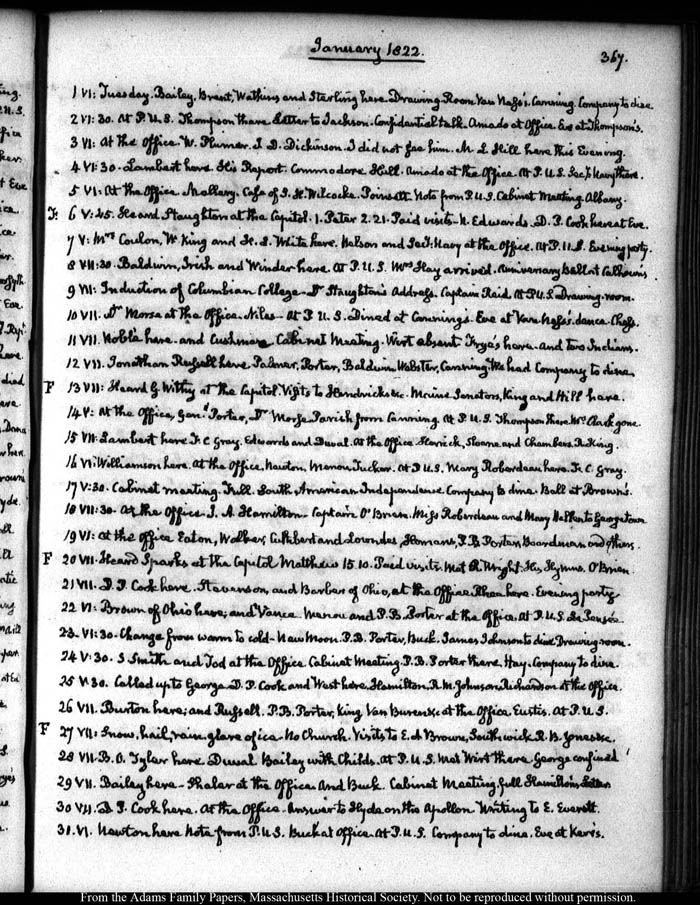 January 1822.
367.
1 VI: Tuesday. Bailey, Brent, Watkins and Sterling here. Drawing Room Van Ness's. Canning. Company to dine
2 VI: 30. At P.U.S. Thompson there Letter to Jackson. Confidential talk. Amado at Office Eve at Thompson's.
3 VI: At the Office. W. Plumer. J. D. Dickinson. I did not see him. M. L. Hill here this Evening.
4 VI. 30. Lambert here. His Report. Commodore Hull. Amado at the Office. At P.U.S. Secy Navy there.
5 VI. At the Office. Mallary. Case of S. H. Wilcocks. Poinsett. Note from P.U.S. Cabinet Meeting. Albany.
F: 6 V: 45. Heard Staughton at the Capitol. 1. Peter 2. 21. Paid visits. N. Edwards. D. P. Cook here at Eve.
7 V: Mrs Coulon, W. King and H. L. White here. Nelson and Sec.y Navy at the Office. At P.U.S. Evening party.
8 VII: 30. Baldwin, Irish and Winder here. At P.U.S. Mrs Hay arrived. Anniversary Ball at Calhoun's
9 VII: Induction of Columbian College. Dr Staughton's Address. Captain Reid. At P.U.S. Drawing-room.
10 VII. Dr Morse at the Office. Niles. At P.U.S. Dined at Canning's. Eve at Van Ness's. dance. Chess.
11 VII. Noble here. and Cushman Cabinet Meeting. Wirt absent Frye's here. and two Indians.
12 VII. Jonathan Russell here Palmer, Porter, Baldwin, Webster, Canning. We had Company to dine
F 13 VII: Heard G Withy at the Capitol. Visits to Hendricks &c. Maine Senators, King and Hill here.
14 V: At the Office, Genl. Porter, Dr Morse Parish from Canning. At P.U.S. Thompson there. Mrs Clark gone.
15 VII. Lambert here F. C. Gray. Edwards and Duval. At the Office Herrick, Sloane and Chambers. R. King.
16 VI: Williamson here. At the Office, Newton, Menou, Tucker. At P.U.S. Mary Roberdeau here. F. C. Gray.
17 V: 30. Cabinet meeting. Full. South American Independence Company to dine. Ball at Brown's.
18 VII: 30. At the Office. J. A. Hamilton. Captain O'Brien. Miss Roberdeau and Mary Hellen to Georgetown
19 VI: At the Office Eaton, Walker, Cuthbert and Lowndes, Homans, P.B. Porter, Boardman and others.
F 20 VII. Heard Sparks at the Capitol Matthew 15. 10. Paid visits. Met R. Wright. His Hymns. O'Brien.
21 VII. D. P. Cook here. Stevenson, and Barber of Ohio, at the Office. Rhea here. Evening party
22 VI: Brown of Ohio here; and Vance Menou and P.B. Porter at the Office. At P.U.S. La Pensée.
23. VI: 30. Change from warm to cold. New Moon. P.B. Porter, Buck. James Johnson to dine. Drawing room.
24 V: 30. S Smith and Tod at the Office Cabinet Meeting. P.B. Porter there. Hay. Company to dine.
25 V. 30. Called up to George. D. P. Cook and West here. Hamilton. R.M. Johnson. Richardson at the Office.
26 VII. Burton here; and Russell. P.B. Porter, King Van Buren &c at the Office. Eustis. At P.U.S.
F 27 VII: Snow, hail, rain, glare of ice. No Church. Visits to E. d Brown, Southwick R. B.
28 VII. B. O. Tyler here. Duval Bailey with Childs. At P.U.S. met Wirt there. George confined
29 VII. Bailey here. Shaler at the Office and Buck. Cabinet Meeting, full. Hamilton's Letter
30 VII. D P. Cook here. At the Office. Answer to Hyde on the Apollon Writing to E. Everett.
31. VI. Newton here Note from P.U.S. Buck at Office. At P.U.S. Company to dine. Eve at Kerr's.
From the Adams Family Papers, Massachusetts Historical Society. Not to be reproduced without permission.